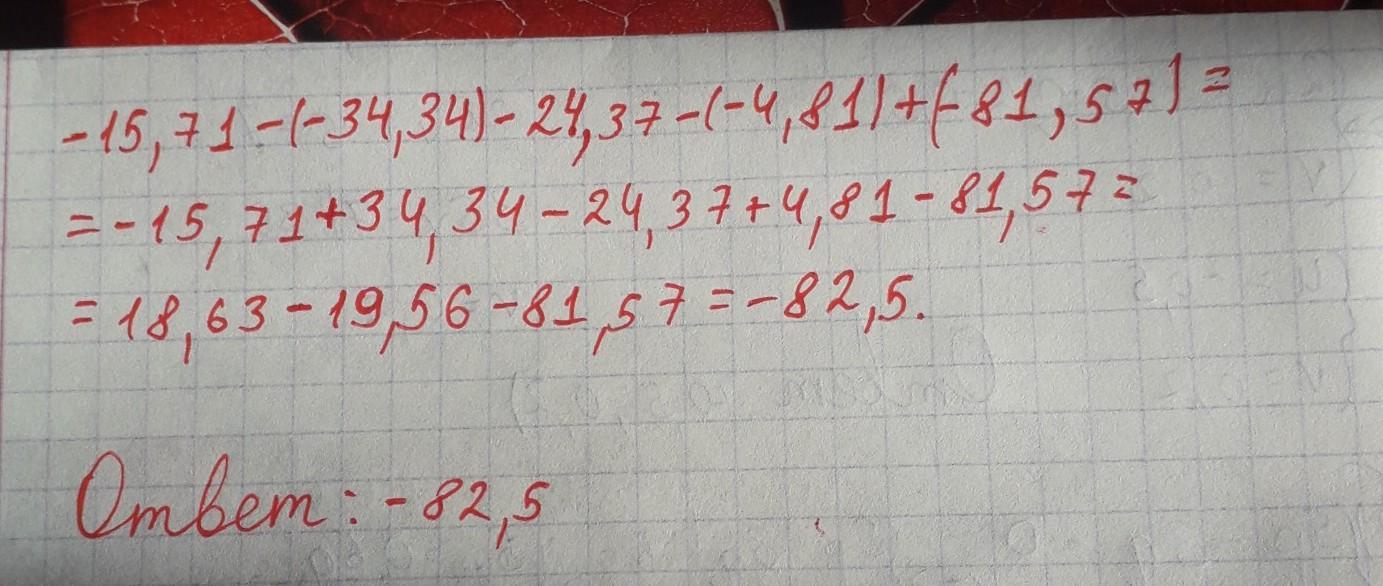 -15,71-(-34,34)-24,37-(-4,81)+(-81,57)=
=-15,71+34,34-24,37+4,81-81,57=
=18,63-19,56-81,57=-82,5.
Ответ: -82,5